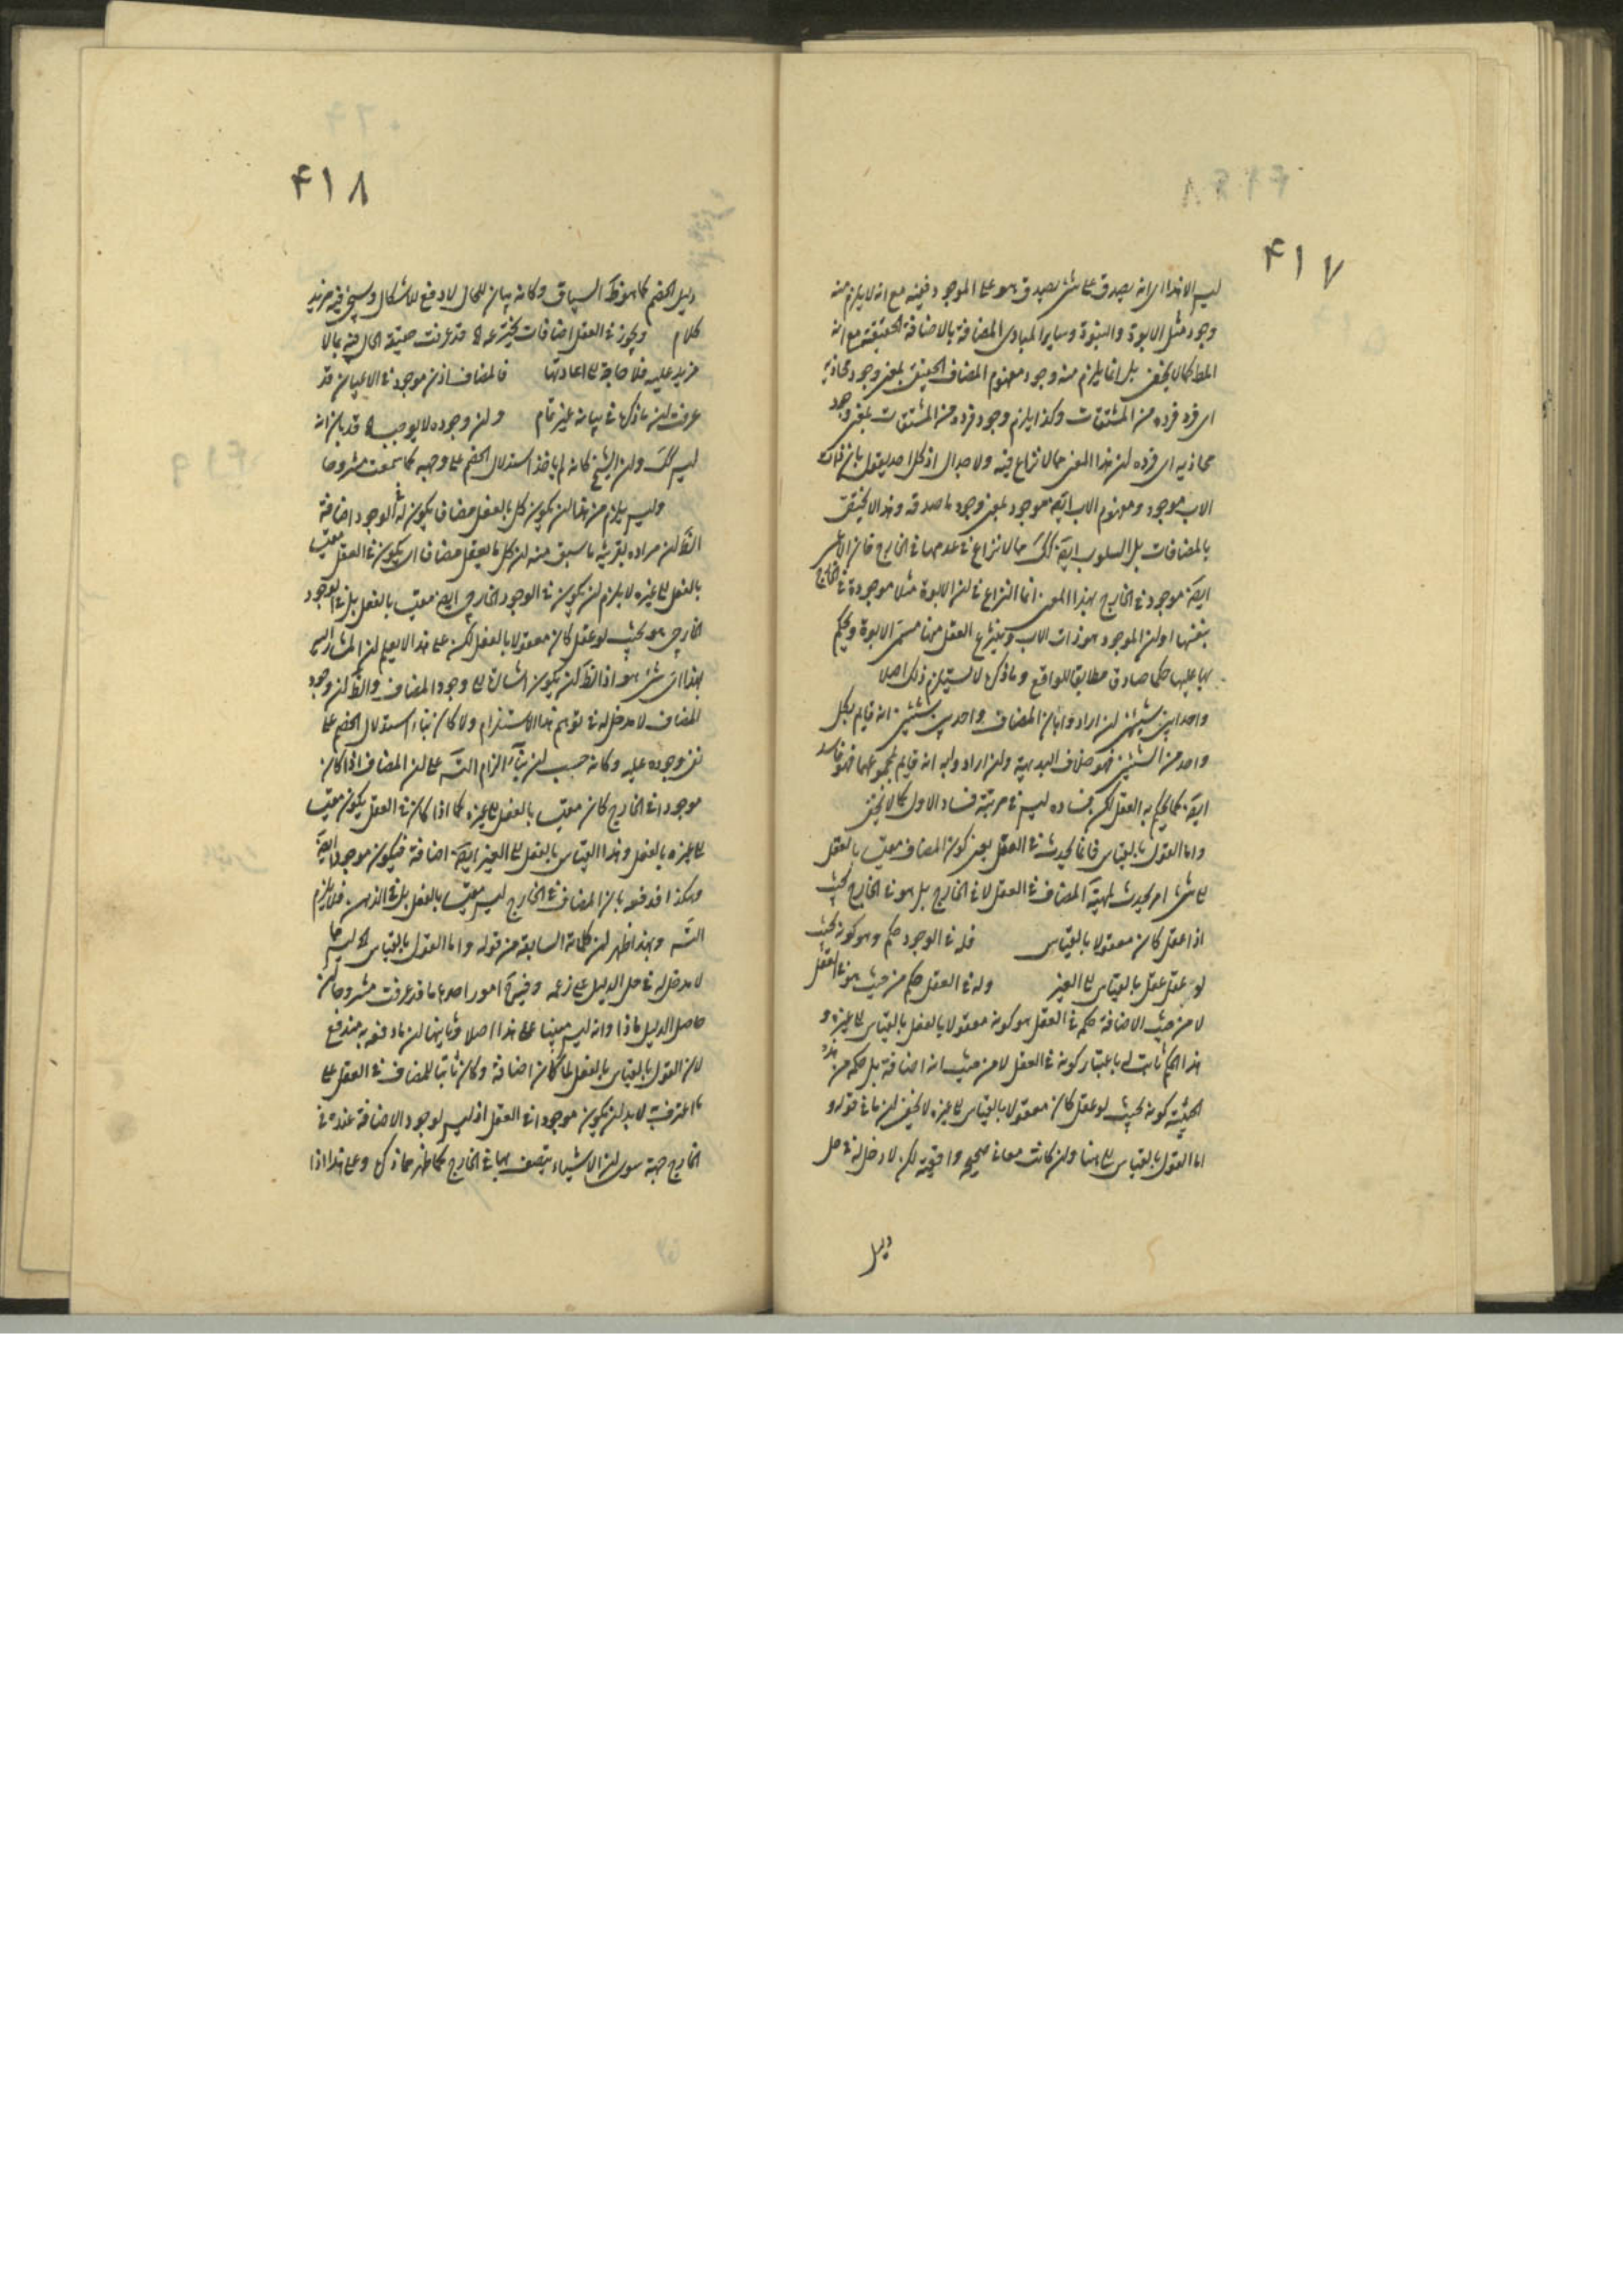 ۴۱۷
ليس الا هذا اي انه يصدق على شيء يصدق هو على الموجود فيه مع انه لا يلزم منه
وجود مثل الابوة والبنوة وساير المبادى المضافة بالاضافة الحقيقة مع انه
المط كما لا يخفى بل انما يلزم منه وجود مفهوم المضاف الحقيقى بمعنى وجود محاذيه
اى فرد فرده من المشتقات وكذا يلزم وجود فرده من المشتقات بمعنى وجود
محاذيه اى فرده لن هذا المعنى مما لا نزاع فيه ولا جدال اذ كل احد يقول بان ذات
الاب موجود ومفهوم الاب ايضا موجود بمعنى وجود ما صدقه وهذا لا يختص
بالمضافات بل السلوب ايضا كك مما لا نزاع فى عدمها فى الخارج فان الاعمى
ايضا موجود فى الخارج بهذا المعنى انما النزاع فى لن الابوة مثلا موجودة فى الخارج
بنفسها او لن الموجود هو ذات الاب وينتزع العقل منها مسمى الابوة ويحكم
بها عليها حكما صادقا مطابقا للواقع وما ذكره لا يستلزم ذلك اصلا
واحد بين شيئين لن ارادوا بان المضاف واحد بين شيئين انه قايم بكل
واحد من الشيئين فهو خلاف البديهة ولن ارادوا به انه قايم بمجموعهما فهو فاسد
ايضا كما يحكم به العقل لكن فساده ليس فى مرتبة فساد الاول كما لا يخفى
واما القول بالقياس فانما يحدث فى العقل يعنى كون المضاف مقيسا بالعقل
على شىء امر يحدث لمهية المضاف فى العقل لا فى الخارج بل هو فى الخارج بحيث
اذا عقل كان معقولا بالقياس فله فى الوجود حكم وهو كونه بحيث
لو عقل عقل بالقياس الى الغير وله فى العقل حكم من حيث هو فى العقل
لا من حيث الاضافة حكمه فى العقل هو كونه معقولا بالفعل بالقياس الى غيره و
هذا الحكم ثابت له باعتبار كونه فى العقل لا من حيث انه اضافة بل حكمه من هذه
الحيثية كونه بحيث لو عقل كان معقولا بالقياس الى غيره لا يخفى لن ما فى قوله و
اما القول بالقياس الى هنا ولن كانت معانى صحيحة واقعية لكن لا دخل له فى حل
دليل
۴۱۸
دليل الخصم كما هو ظ السياق وكانه بيان للحال لا دفع للاشكال وسيجئ فيه مزيد
كلام ويجوز فى العقل اضافات يخترعه الخ قد عرفت حقيقة الحال فيه بما لا
مزيد عليه فلا حاجة الى اعادتها فالمضاف اذن موجود فى الاعيان قد
عرفت لن ما ذكره فى بيانه غير تام ولن وجوده لا يوجب الخ قد بان انه
ليس كك ولن الشيخ كانه لم ياخذ استدلال الخصم على وجهه كما سمعت مشروحا
وليس يلزم من هذا لن يكون كل بالعقل مضاف يكون له فى الوجود اضافة
الظ لن مراده بقرينة ما سبق منه لن كل ما يعقل مضافا اى يكون فى العقل مقيسا
بالفعل الى غيره لا يلزم لن يكون فى الوجود الخارجى ايضا مقيسا بالفعل بل فى الوجود
الخارجى هو بحيث لو عقل كان معقولا بالفعل لكن على هذا لا يعلم لن المشار اليه
بهذا اى شىء هو اذ الظ لن يكون اشارة الى وجود المضاف والظ لن وجود
المضاف لا مدخل له فى توهم هذا الاستلزام ولا كان بناء استدلال الخصم على
نفى وجوده عليه وكانه حسب لن بناء الزام التسلسل على لن المضاف اذا كان
موجودا فى الخارج كان مقيسا بالفعل الى غيره كما اذا كان فى العقل يكون مقيسا
الى غيره بالفعل وهذا القياس بالفعل الى الغير ايضا اضافة فيكون موجودا ايضا
وهكذا فدفعه بان المضاف فى الخارج ليس مقيسا بالفعل بل فى الذهن فلا يلزم
التسلسل وبهذا ظهر لن كلماته السابقة من قوله واما القول بالقياس الخ ليس مما
لا مدخل له فى حل الدليل على زعمه وفيه امور احدها ما قد عرفت مشروحا لن
حاصل الدليل ماذا وانه ليس مبنيا على هذا اصلا وثانيها لن ما دفعه به مندفع
لان القول بالقياس بالفعل لما كان اضافة وكان ثابتا للمضاف فى العقل على
ما اعترفت لا بد لن يكون موجودا فى العقل اذ ليس لوجود الاضافة عنده فى
الخارج جهة سوى لن الاشياء يتصف بها فى الخارج كما ظهر مما ذكره وعلى هذا اذا